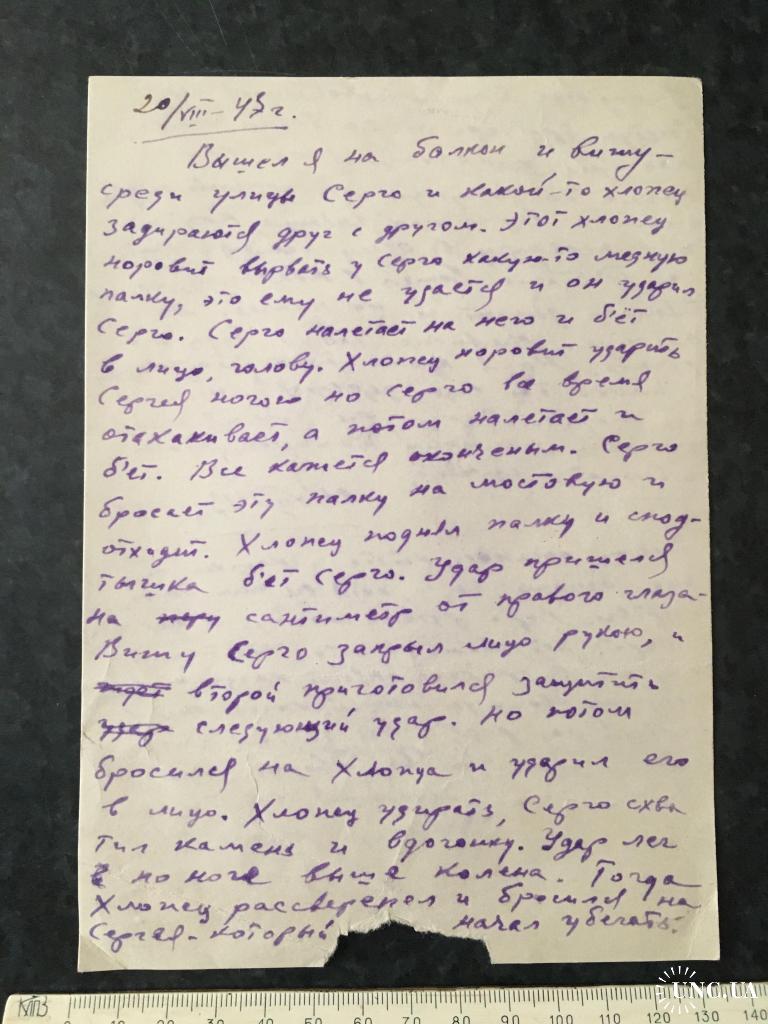 20/VIII - 45 г.
Вышел я на балкон и вижу –
среди улицы Серго и какой-то хлопец
задираются друг с другом. Этот хлопец
норовит вырвать у Серго какую-то медную
палку, это ему не удается и он ударил
Серго. Серго налетает на него и б'ёт
в лицо, голову. Хлопец норовит ударить
Сергея ногою но Серго во время
отскакивает, а потом налетает и
б'ет. Все кажется оконченым. Серго
бросает эту палку на мостовую и
отходит. Хлопец поднял палку и спод-
тышка б'ет Серго. Удар пришелся
на сантиметр от правого глаза-
Вижу Серго закрыл лицо рукою, и
второй приготовился защитить
удар следующий удар. Но потом
бросился на Хлопца и ударил его
в лицо. Хлопец удирать, Серго схва
тил камень и вдогонку. Удар лег
по ноге выше колена. Тогда
Хлопец рассверепел и бросился на
Сергея – который начал убегать.
КТПВ
0 10 20 30 40 50 60 70 80 90 100 110 120 130 140
UNC.UA